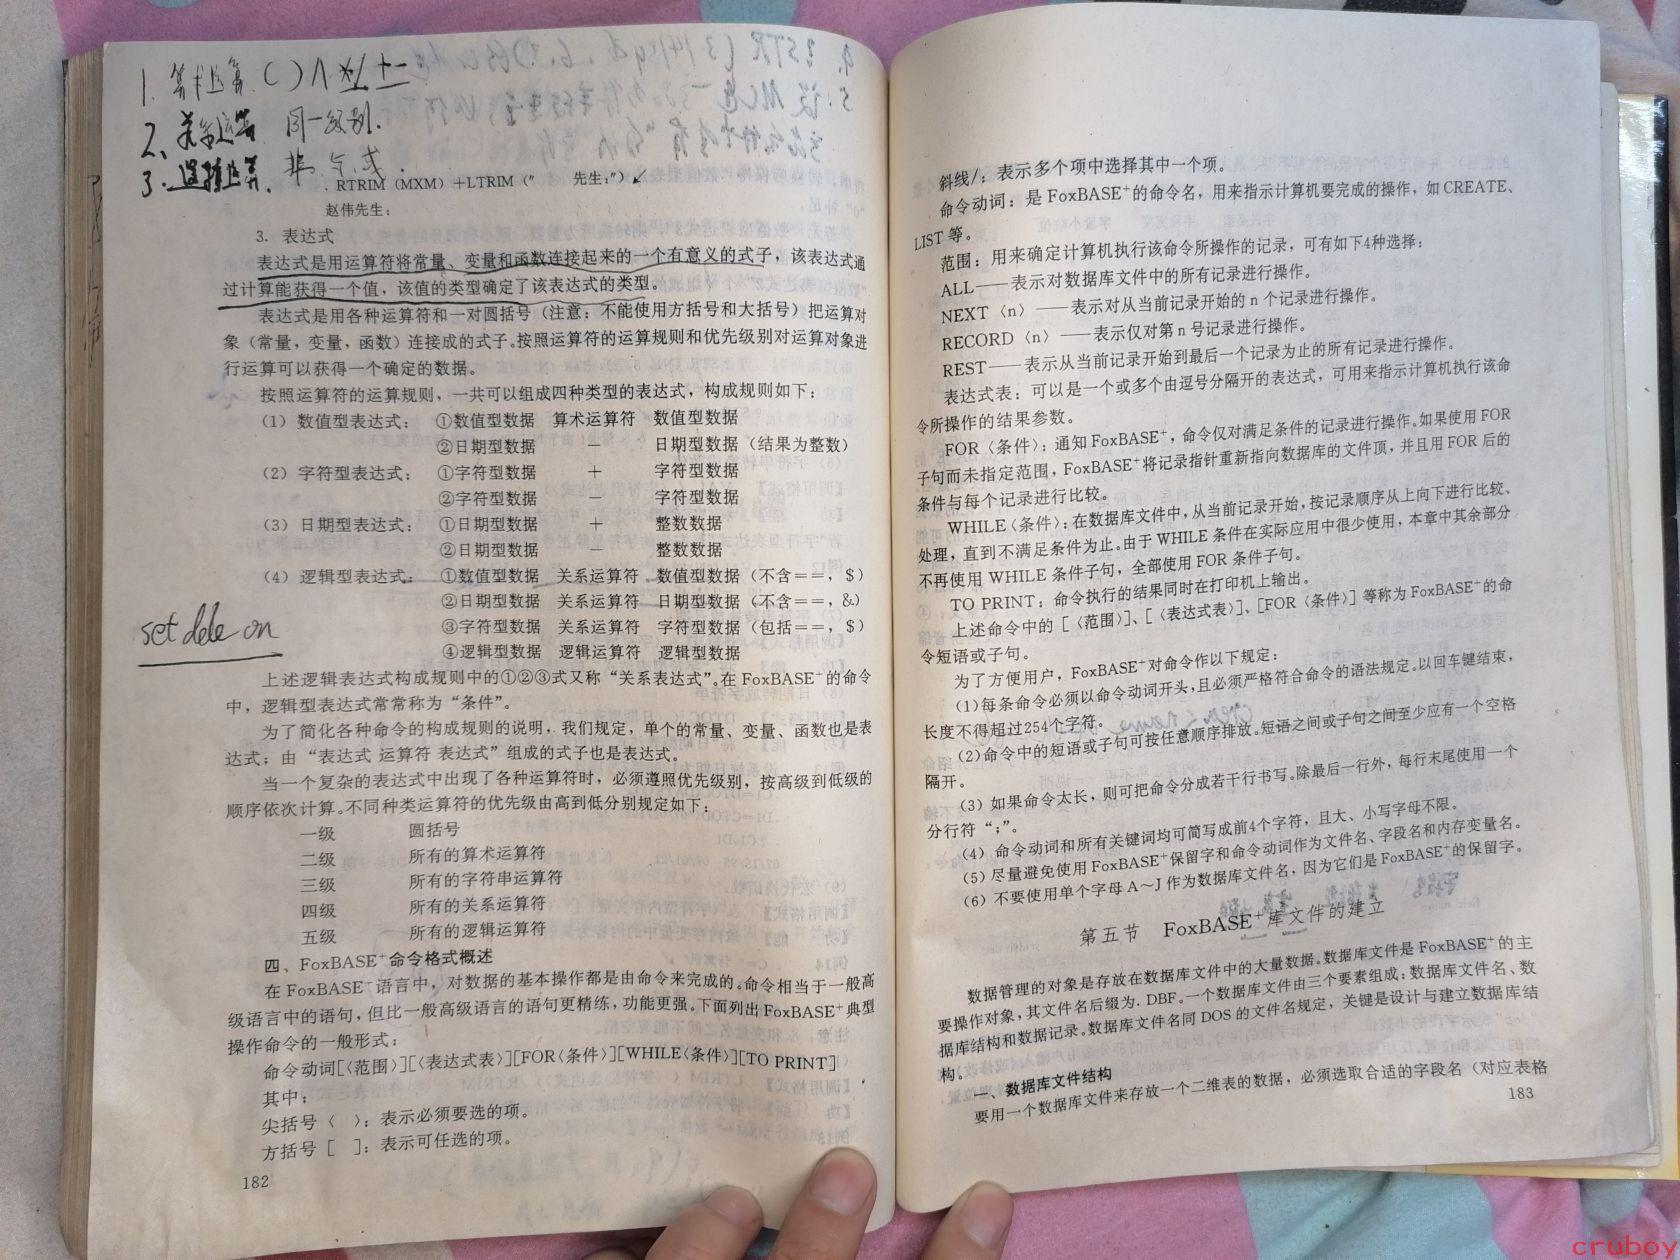 1. 算术运算 ( ) ∧ */ +-
2、关系运算 同一级别.
3. 逻辑运算. 非 与 或.
. RTRIM (MXM) +LTRIM (" 先生:")↙
赵伟先生:
3. 表达式
表达式是用运算符将常量、变量和函数连接起来的一个有意义的式子，该表达式通
过计算能获得一个值，该值的类型确定了该表达式的类型。
表达式是用各种运算符和一对圆括号（注意：不能使用方括号和大括号）把运算对
象（常量，变量，函数）连接成的式子。按照运算符的运算规则和优先级别对运算对象进
行运算可以获得一个确定的数据。
按照运算符的运算规则，一共可以组成四种类型的表达式，构成规则如下：
(1) 数值型表达式： ①数值型数据 算术运算符 数值型数据
②日期型数据 － 日期型数据（结果为整数）
(2) 字符型表达式： ①字符型数据 ＋ 字符型数据
②字符型数据 － 字符型数据
(3) 日期型表达式： ①日期型数据 ＋ 整数数据
②日期型数据 － 整数数据
(4) 逻辑型表达式： ①数值型数据 关系运算符 数值型数据（不含＝＝，$）
②日期型数据 关系运算符 日期型数据（不含＝＝，&）
③字符型数据 关系运算符 字符型数据（包括＝＝，$）
set dele on
④逻辑型数据 逻辑运算符 逻辑型数据
上述逻辑表达式构成规则中的①②③式又称“关系表达式”。在 FoxBASE⁺的命令
中，逻辑型表达式常常称为“条件”。
为了简化各种命令的构成规则的说明，我们规定，单个的常量、变量、函数也是表
达式；由“表达式 运算符 表达式”组成的式子也是表达式。
当一个复杂的表达式中出现了各种运算符时，必须遵照优先级别，按高级到低级的
顺序依次计算。不同种类运算符的优先级由高到低分别规定如下：
一级 圆括号
二级 所有的算术运算符
三级 所有的字符串运算符
四级 所有的关系运算符
五级 所有的逻辑运算符
四、FoxBASE⁺命令格式概述
在 FoxBASE⁺语言中，对数据的基本操作都是由命令来完成的。命令相当于一般高
级语言中的语句，但比一般高级语言的语句更精练，功能更强。下面列出 FoxBASE⁺典型
操作命令的一般形式：
命令动词[〈范围〉][〈表达式表〉][FOR〈条件〉][WHILE〈条件〉][TO PRINT]
其中：
尖括号〈 〉：表示必须要选的项。
方括号［ ］：表示可任选的项。
182
斜线/：表示多个项中选择其中一个项。
命令动词：是 FoxBASE⁺的命令名，用来指示计算机要完成的操作，如 CREATE、
LIST 等。
范围：用来确定计算机执行该命令所操作的记录，可有如下4种选择：
ALL——表示对数据库文件中的所有记录进行操作。
NEXT〈n〉——表示对从当前记录开始的 n 个记录进行操作。
RECORD〈n〉——表示仅对第 n 号记录进行操作。
REST——表示从当前记录开始到最后一个记录为止的所有记录进行操作。
表达式表：可以是一个或多个由逗号分隔开的表达式，可用来指示计算机执行该命
令所操作的结果参数。
FOR〈条件〉：通知 FoxBASE⁺，命令仅对满足条件的记录进行操作。如果使用 FOR
子句而未指定范围，FoxBASE⁺将记录指针重新指向数据库的文件顶，并且用 FOR 后的
条件与每个记录进行比较。
WHILE〈条件〉：在数据库文件中，从当前记录开始，按记录顺序从上向下进行比较、
处理，直到不满足条件为止。由于 WHILE 条件在实际应用中很少使用，本章中其余部分
不再使用 WHILE 条件子句，全部使用 FOR 条件子句。
TO PRINT：命令执行的结果同时在打印机上输出。
上述命令中的［〈范围〉］、［〈表达式表〉］、［FOR〈条件〉］等称为 FoxBASE⁺的命
令短语或子句。
为了方便用户，FoxBASE⁺对命令作以下规定：
(1)每条命令必须以命令动词开头，且必须严格符合命令的语法规定。以回车键结束，
长度不得超过254个字符。
(2)命令中的短语或子句可按任意顺序排放。短语之间或子句之间至少应有一个空格
隔开。
(3) 如果命令太长，则可把命令分成若干行书写。除最后一行外，每行末尾使用一个
分行符“；”。
(4) 命令动词和所有关键词均可简写成前4个字符，且大、小写字母不限。
(5) 尽量避免使用 FoxBASE⁺保留字和命令动词作为文件名、字段名和内存变量名。
(6) 不要使用单个字母 A～J 作为数据库文件名，因为它们是 FoxBASE⁺的保留字。
第五节 FoxBASE⁺库文件的建立
数据管理的对象是存放在数据库文件中的大量数据。数据库文件是 FoxBASE⁺的主
要操作对象，其文件名后缀为. DBF。一个数据库文件由三个要素组成：数据库文件名、数
据库结构和数据记录。数据库文件名同 DOS 的文件名规定，关键是设计与建立数据库结
构。
一、数据库文件结构
要用一个数据库文件来存放一个二维表的数据，必须选取合适的字段名（对应表格
183
cruboy